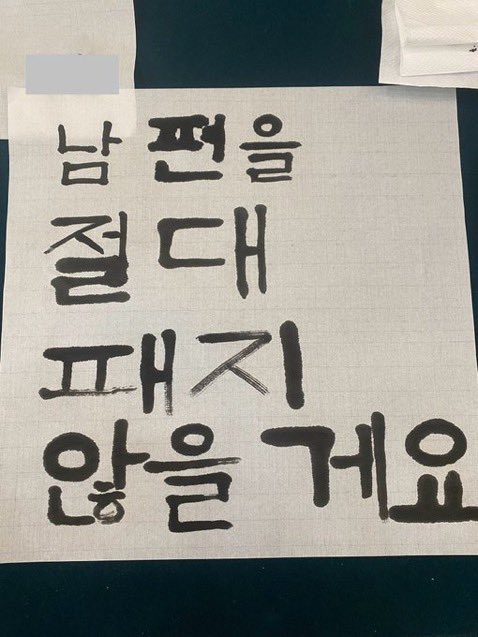 남편을
절대
패지
않을게요